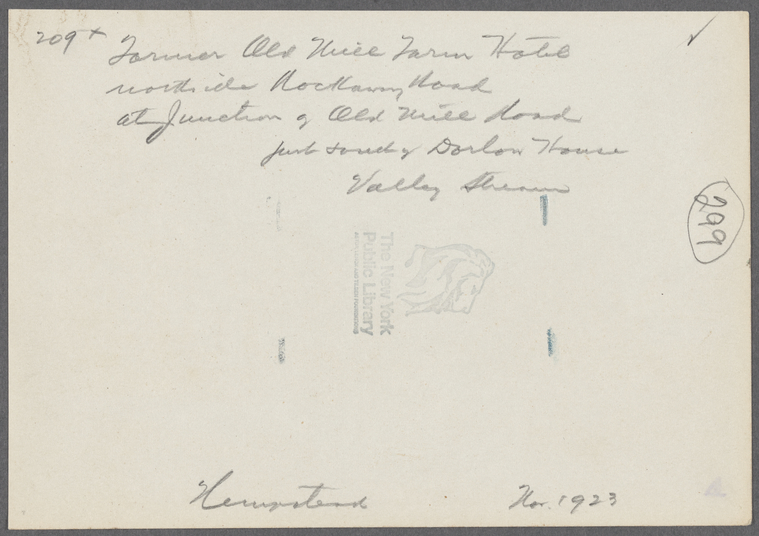 209+
Former Old Mill Farm Hotel
northside Rockaway Road
at Junction of Old Mill Road
just south of Dorlon House
Valley Stream
299
The New York
Public Library
Hempstead
Nov. 1923